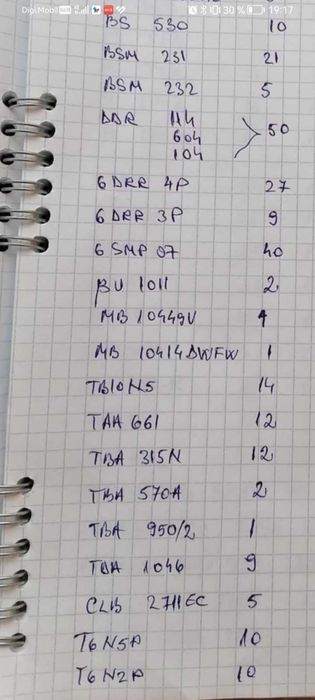 Digi.Mobil 30 % 19:17
BS 530 10
BSM 231 21
BSM 232 5
DDR 114
604 50
104
6 DRR 4P 27
6 DRR 3P 9
6 SMP 07 40
BU 1011 2
MB 10449V 1
MB 10414DWFW 1
TB10N5 14
TAA 661 12
TBA 315N 12
TBA 570A 2
TBA 950/2 1
TDA 1046 9
CLB 2711EC 5
T6N5A 10
T6N2A 10